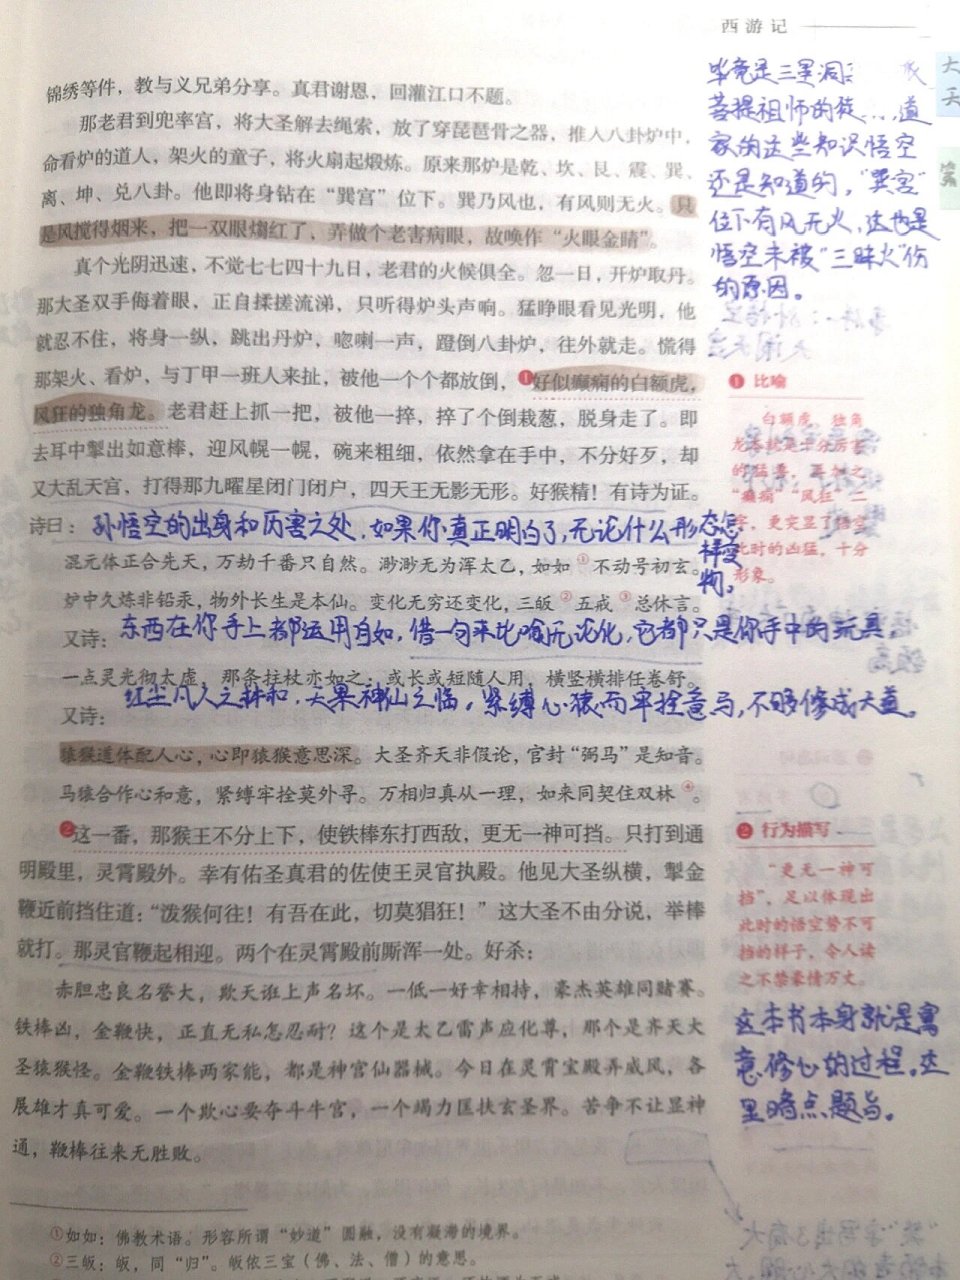 西游记
锦绣等件，教与义兄弟分享。真君谢恩，回灌江口不题。
那老君到兜率宫，将大圣解去绳索，放了穿琵琶骨之器，推入八卦炉中，
命看炉的道人，架火的童子，将火扇起煅炼。原来那炉是乾、坎、艮、震、巽、
离、坤、兑八卦。他即将身钻在“巽宫”位下。巽乃风也，有风则无火。只
是风搅得烟来，把一双眼㷉红了，弄做个老害病眼，故唤作“火眼金睛”。
真个光阴迅速，不觉七七四十九日，老君的火候俱全。忽一日，开炉取丹。
那大圣双手侮着眼，正自揉搓流涕，只听得炉头声响。猛睁眼看见光明，他
就忍不住，将身一纵，跳出丹炉，唿喇一声，蹬倒八卦炉，往外就走。慌得
那架火、看炉，与丁甲一班人来扯，被他一个个都放倒，❶好似癫痫的白额虎，
风狂的独角龙。老君赶上抓一把，被他一捽，捽了个倒栽葱，脱身走了。即
去耳中掣出如意棒，迎风幌一幌，碗来粗细，依然拿在手中，不分好歹，却
又大乱天宫，打得那九曜星闭门闭户，四天王无影无形。好猴精！有诗为证。
诗曰：
孙悟空的出身和厉害之处，如果你真正明白了，无论什么形态怎
样变
物，
混元体正合先天，万劫千番只自然。渺渺无为浑太乙，如如①不动号初玄。
炉中久炼非铅汞，物外长生是本仙。变化无穷还变化，三皈②五戒③总休言。
又诗：
东西在你手上都运用自如，借一句来比喻无论化，它都只是你手中的玩具。
一点灵光彻太虚，那条拄杖亦如之：或长或短随人用，横竖横排任卷舒。
又诗：
红尘凡人之 和，天果神仙之临。紧缚心猿而牢拴意马，不够修成大道。
猿猴道体配人心，心即猿猴意思深。大圣齐天非假论，官封“弼马”是知音。
马猿合作心和意，紧缚牢拴莫外寻。万相归真从一理，如来同契住双林④。
❷这一番，那猴王不分上下，使铁棒东打西敌，更无一神可挡。只打到通
明殿里，灵霄殿外。幸有佑圣真君的佐使王灵官执殿。他见大圣纵横，掣金
鞭近前挡住道：“泼猴何往！有吾在此，切莫猖狂！”这大圣不由分说，举棒
就打。那灵官鞭起相迎。两个在灵霄殿前厮浑一处。好杀：
赤胆忠良名誉大，欺天诳上声名坏。一低一好幸相持，豪杰英雄同赌赛。
铁棒凶，金鞭快，正直无私怎忍耐？这个是太乙雷声应化尊，那个是齐天大
圣猿猴怪。金鞭铁棒两家能，都是神宫仙器械。今日在灵霄宝殿弄威风，各
展雄才真可爱。一个欺心要夺斗牛宫，一个竭力匡扶玄圣界。苦争不让显神
通，鞭棒往来无胜败。
①如如：佛教术语。形容所谓“妙道”圆融，没有凝滞的境界。
②三皈：皈，同“归”。皈依三宝（佛、法、僧）的意思。
毕竟是三星洞
菩提祖师的徒 道
家的这些知识悟空
还是知道的，“巽宫”
位下有风无火，这也是
悟空未被“三昧火”伤
的原因。
❶ 比喻
白额虎、独角
龙本就是十分厉害
的猛兽，再加之
“癫痫”“风狂”二
字，更突显了悟空
此时的凶猛，十分
形象。
❷ 行为描写
“更无一神可
挡”，足以体现出
此时的悟空势不可
挡的样子，令人读
之不禁豪情万丈。
这本书本身就是寓
意修心的过程。这
里暗点题旨。